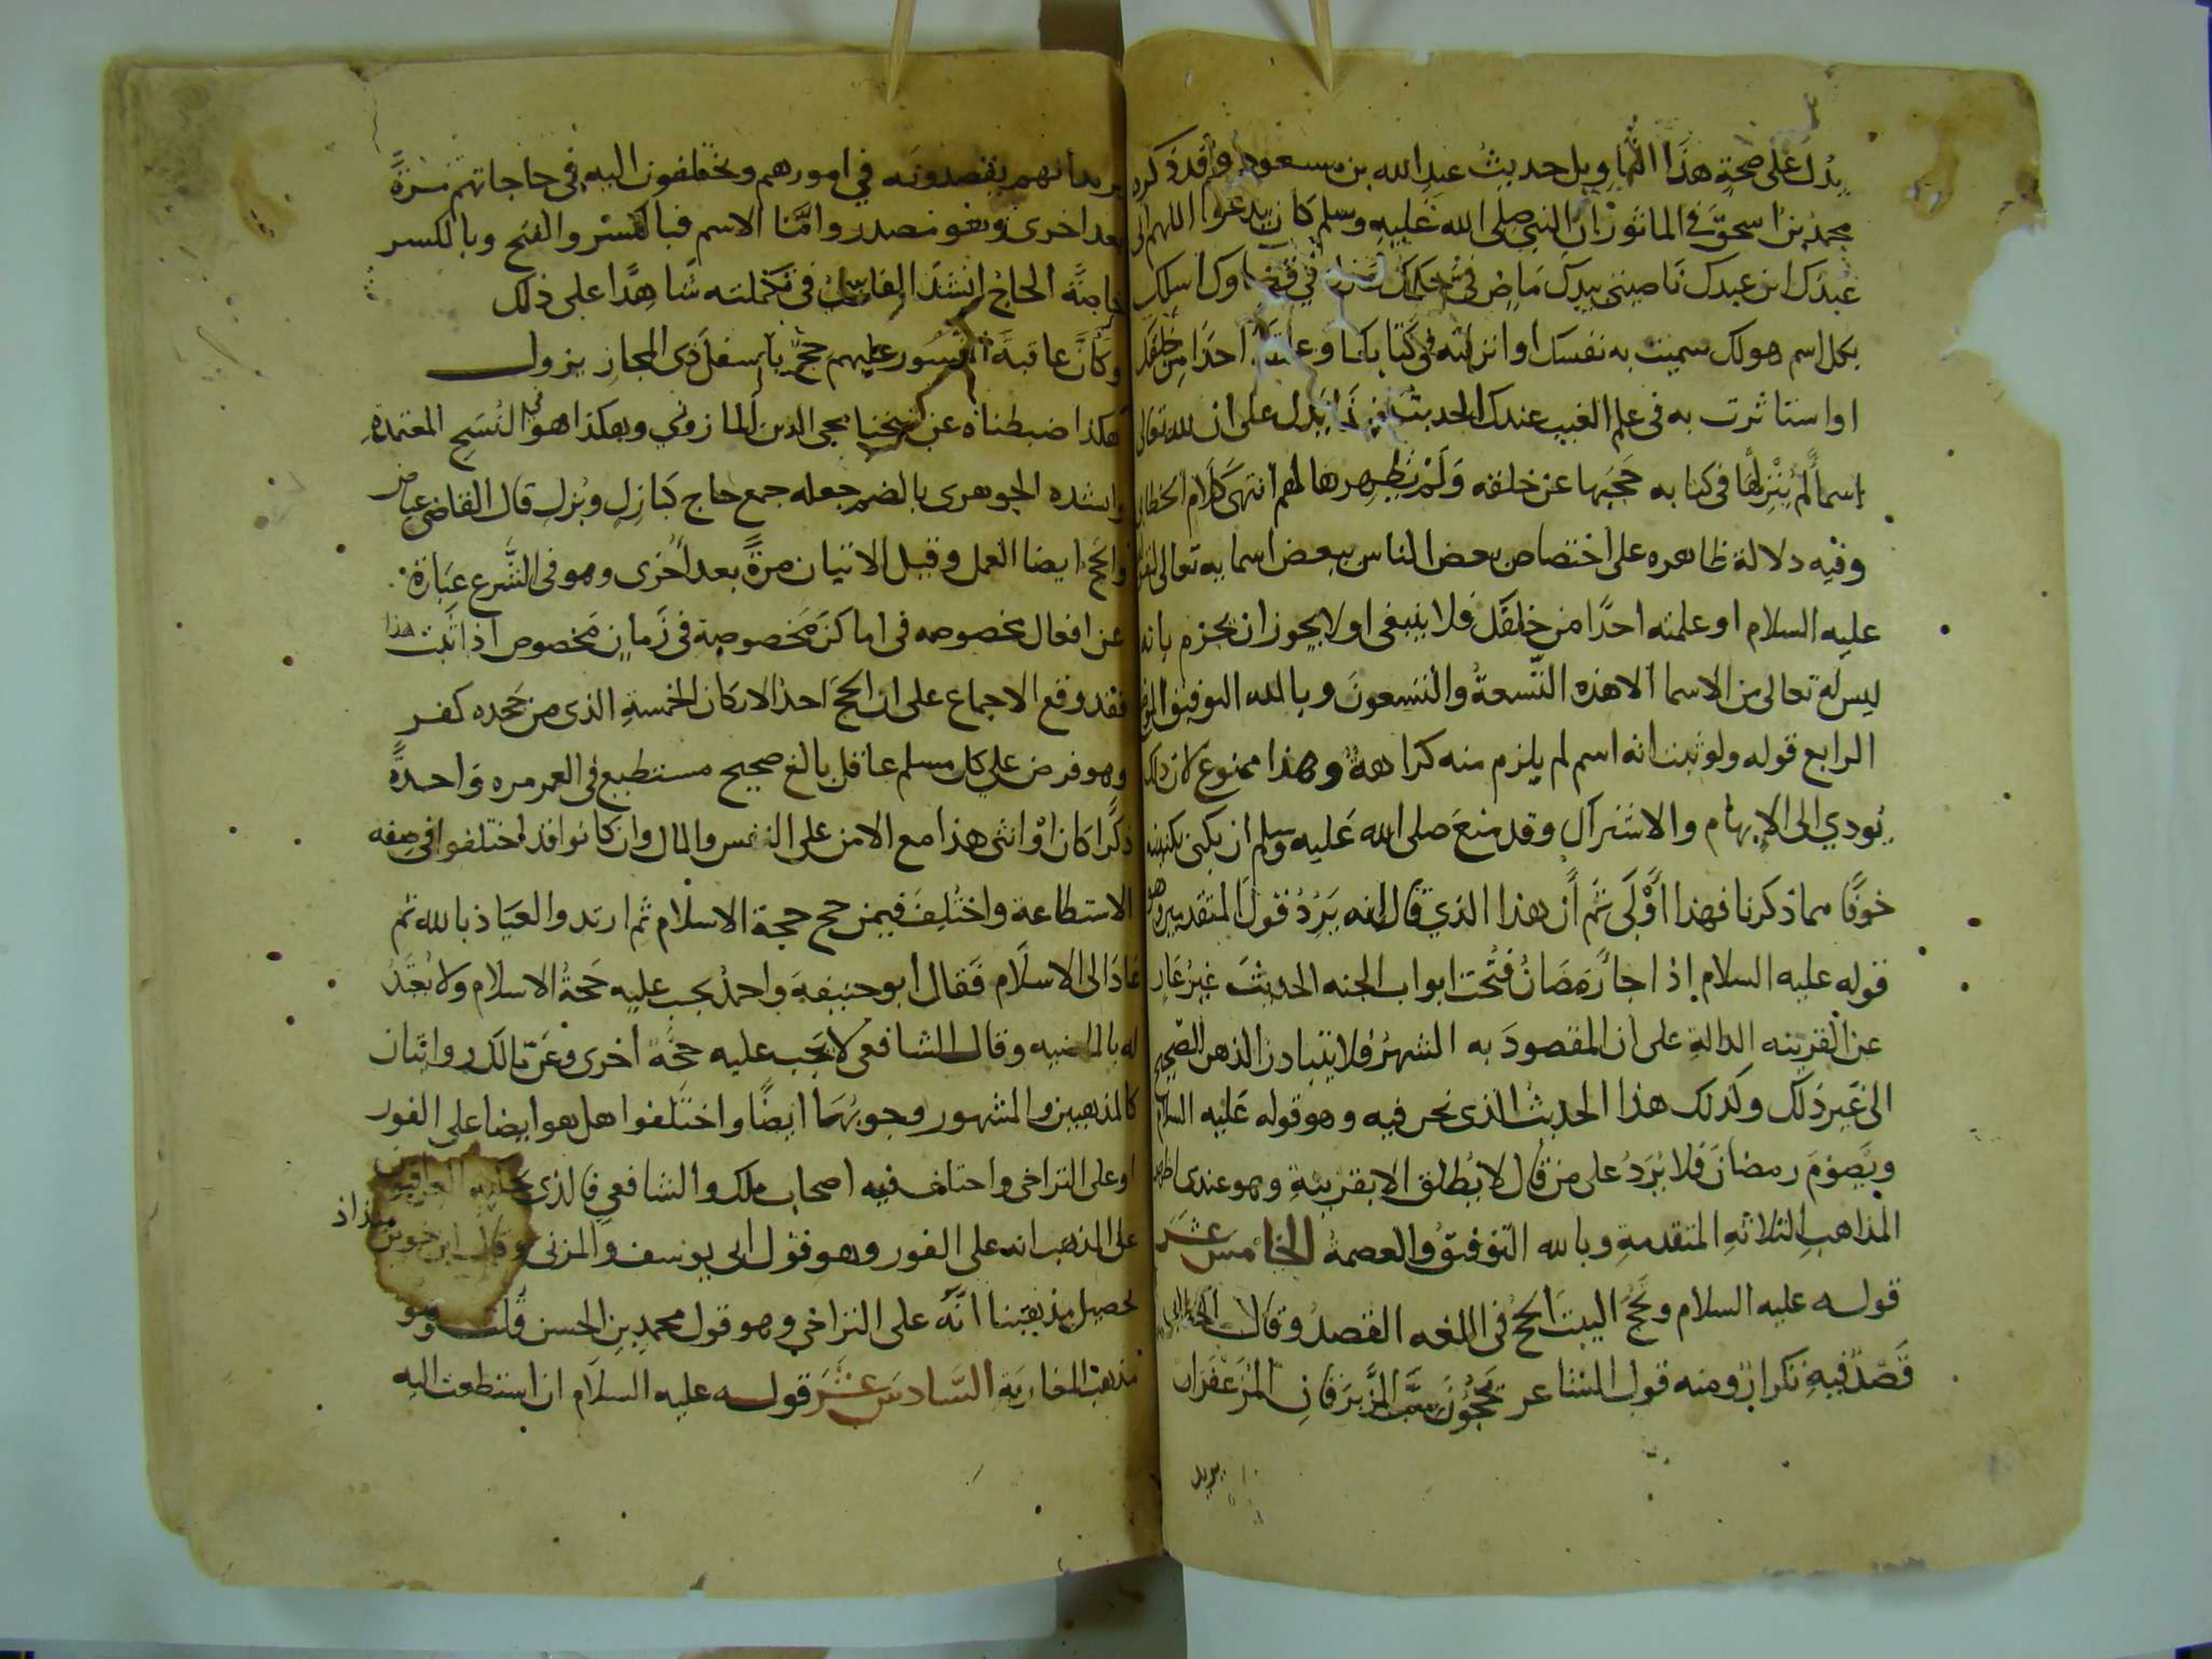 يدل على صحة هذا التاويل حديث عبد الله بن مسعود وقد ذكره
محمد بن اسحق في الماثور ان النبي صلى الله عليه وسلم كان يدعوا اللهم اني
عبدك ابن عبدك ناصيتي بيدك ماض في حكمك في قضاوك اسلك
بكل اسم هو لك سميت به نفسك او انزلته في كتابك او علمته احدا من خلقك
او استاثرت به في علم الغيب عندك الحديث يدل على ان لله تعالى
اسماً لم يُنْزِلها في كتابه حَجَبَها عن خلقه وَلَمْ يُظهرها لهم انتهى كلام الخطابي
وفيه دلالة ظاهره على اختصاص بعض الناس ببعض اسمايه تعالى لقوله
عليه السلام او علمته احدًا من خلقك فلا ينبغي او لا يجوز ان يجزم بانه
ليس له تعالى من الاسما الا هذه التّسعةُ والتسعونَ وبالله التوفيق
الرابع قوله ولو ثبت انه اسم لم يلزم منه كراهةٌ وهذا ممنوع لان ذلك
يُودي الى الإبهام والاشتراك وقد منعَ صلى الله عليه وسلم ان يكنى بكنيته
خوفًا مما ذكرنا فهذا أَوْلَى ثم أن هذا الذي قال انه يَرُدُ قول المتقدمين وهو
قوله عليه السلام اذا جا رَمَضَانُ فتّحت ابواب الجنه الحديث غيرُ عَارٍ
عن القرينه الدالةِ على ان المقصودَ به الشهرُ فلا يتبادر الذهن الصحيح
الى غَيرِ ذَلك وكذلك هذا الحديث الذي نحن فيه وهو قوله عَليه السلام
وتَصومَ رمضانَ فلا يُرَدُ على من قال لا يُطلق الا بقرينةٍ وهو عندى اظهر
المذاهبِ الثلاثهِ المتقدمةِ وبالله التوفيقُ والعصمةُ الخامس عشر
قوله عليه السلام وتَحُجَّ البيتَ الحجُ في اللغه القصدُ وقال الخطابي
قَصْدٌ فيهِ تكرارٌ ومنه قول الشاعر يَحُجُّونَ سِبَّ الزِّبرَقانِ المُزَعْفَرا
يريد
يريد انهم يقصدونه في امورهم ويختلفون اليه في حاجاتهم مرَّةً
بعد اخرى وهو مصدر وامَّا الاسم فبالكسر والفتح وبالكسر
خاصَّة الحاج انشد الفارسي في تكملته شاهدًا على ذلك
وكأنَّ عاقبةَ النُّسُور عليهم حِجٌّ باسفل ذي المجاز نزول
هكذا ضبطناه عن شيخنا محيي الدين المازوني وهكذا هو في النُسَخ المعتمدةِ
وانشده الجوهري بالضم جعله جمع حاج كبَازِلٍ وبُزلٍ قال القاضي عياض
والحَج ايضا العمل وقيل الاتيان مرّةً بعد أُخرى وهو في الشَّرع عِبَارة
عن افعال مخصوصه في اماكنَ مَخصوصةٍ في زَمانٍ مَخصوص اذا ثبت هذا
فقد وقع الاجماع على ان الحجَ احد الاركان الخمسةِ الذى من جَحَده كفر
وهو فرض على كل مسلم عاقل بالغ صحيح مستطيع في العمر مره واحدةً
ذكرًا كان أوْ انثى هذا مع الامن على النفس والمال وان كانوا قد اختلفوا في صفه
الاستطاعة واختُلِفَ فيمن حج حجة الاسلام ثم ارتد والعياذ بالله ثم
عَادَ الى الاسلام فقال ابو حنيفةَ واحمدُ يجب عليه حَجةُ الاسلام ولا يُعتَدُ
له بالماضيه وقال الشافعي لا يَجب عليه حجَّة اخرى وعَن مالك روايتان
كالمذهبين والمشهور وجوبُهَا ايضًا واختَلفوا هل هو ايضا على الفور
او على التراخي واختلف فيه اصحاب ملك والشافعي فالذى العراقيين
على المذهب انه على الفور وهو قول ابى يوسف والمزنى وقال ابن خويز منذاذ
تحصيل مذهبنا انَّه على التراخي وهو قول محمد بن الحسن قُلت وهو
مذهبُ المغاربَةِ السَّادس عَشَرَ قوله عليه السلام ان استطعت اليه